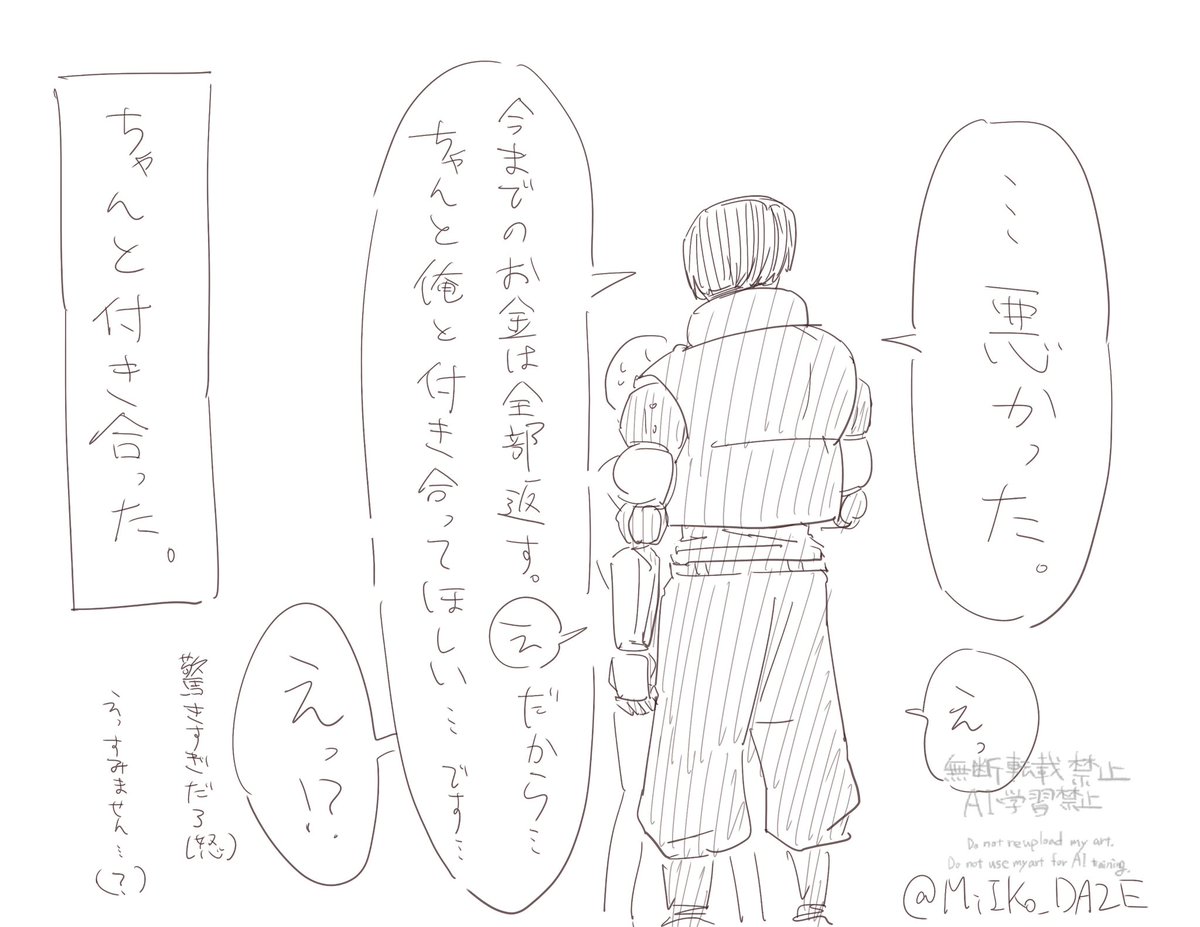 …悪かった。
えっ
今までのお金は全部返す。
え
だから…
ちゃんと俺と付き合ってほしい…です…
えっ!?
驚きすぎだろ(怒)
えっすみません…(?)
ちゃんと付き合った。
無断転載禁止
AI学習禁止
Do not reupload my art.
Do not use my art for AI training.
@MiIKo_DAZE